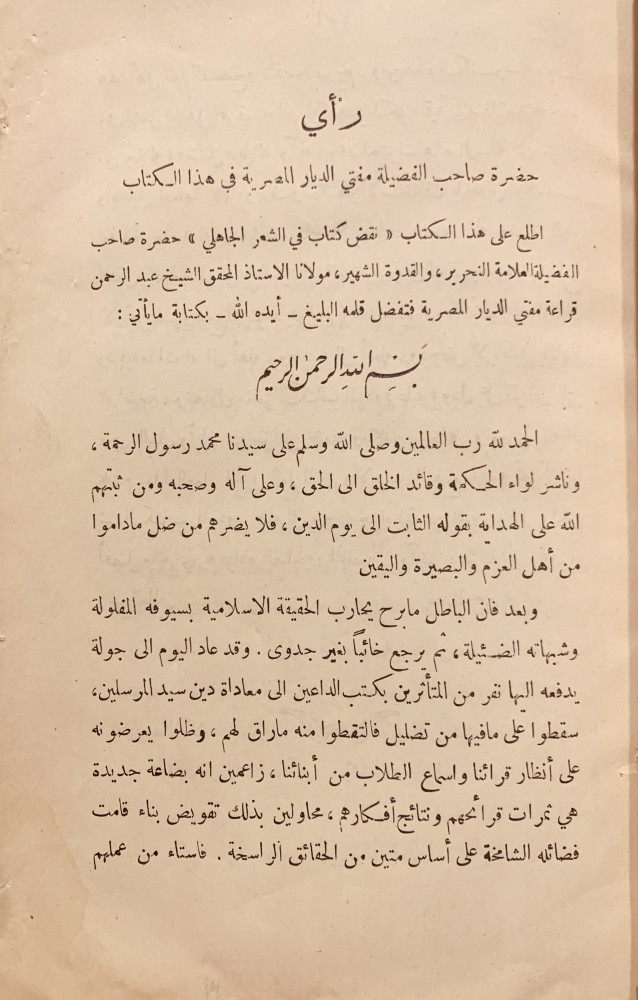 رأي
حضرة صاحب الفضيلة مفتي الديار المصرية في هذا الكتاب
اطلع على هذا الكتاب « نقض كتاب في الشعر الجاهلي » حضرة صاحب
الفضيلة العلامة النحرير ، والقدوة الشهير ، مولانا الاستاذ المحقق الشيخ عبد الرحمن
قراعة مفتي الديار المصرية فتفضل قلمه البليغ ـ أيده الله ـ بكتابة مايأتي :
بسم الله الرحمن الرحيم
الحمد لله رب العالمين وصلى الله وسلم على سيدنا محمد رسول الرحمة ،
وناشر لواء الحكمة وقائد الخلق الى الحق ، وعلى آله وصحبه ومن ثبتهم
الله على الهداية بقوله الثابت الى يوم الدين ، فلا يضرهم من ضل ماداموا
من أهل العزم والبصيرة واليقين
وبعد فان الباطل مابرح يحارب الحقيقة الاسلامية بسيوفه المفلولة
وشبهاته الضئيلة ، ثم يرجع خائباً بغير جدوى . وقد عاد اليوم الى جولة
يدفعه اليها نفر من المتأثرين بكتب الداعين الى معاداة دين سيد المرسلين،
سقطوا على مافيها من تضليل فالتقطوا منه ماراق لهم ، وظلوا يعرضونه
على أنظار قرائنا واسماع الطلاب من أبنائنا ، زاعمين انه بضاعة جديدة
هي ثمرات قرائحهم ونتائج أفكارهم ، محاولين بذلك تقويض بناء قامت
فضائله الشامخة على أساس متين من الحقائق الراسخة . فاستاء من عملهم